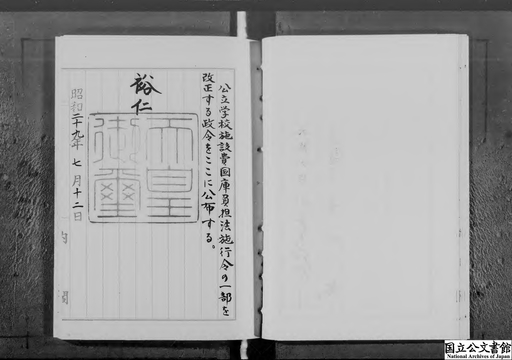 公立学校施設費国庫負担法施行令の一部を
改正する政令をここに公布する。
裕仁
天皇
御璽
昭和二十九年七月十二日
国立公文書館
National Archives of Japan